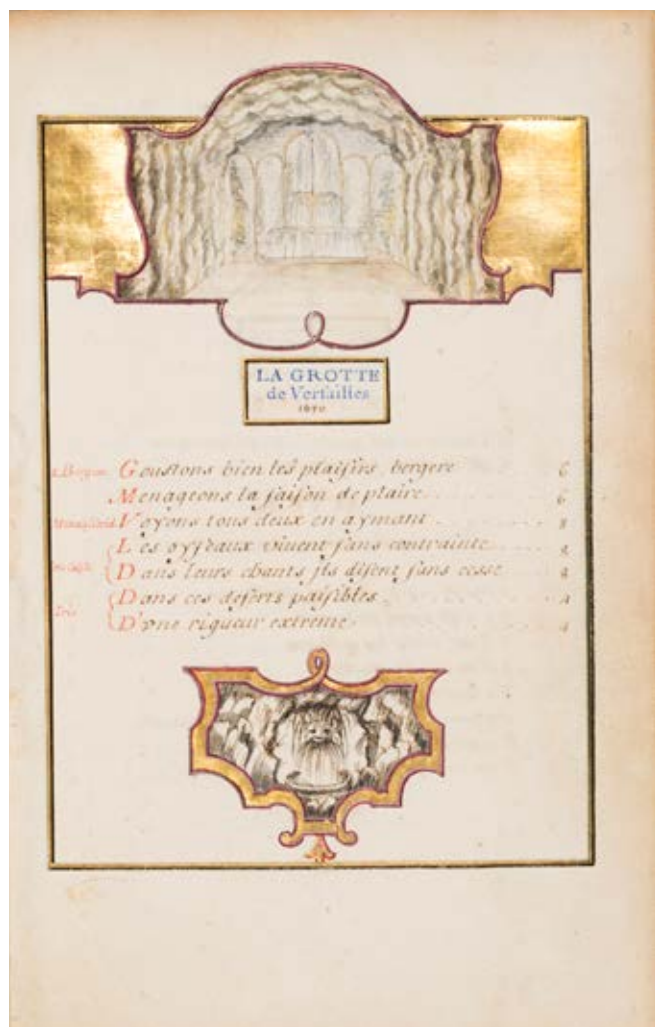 LA GROTTE
de Versailles
1670
Goustons bien les plaisirs, bergere 6
Menageons la saison de plaire 6
Voyons tous deux en aymant 8
Les oyseaux vivent sans contrainte
Dans leurs chants ils disent sans cesse
Dans ces deserts paisibles 4
Iris D'une rigueur extreme 4